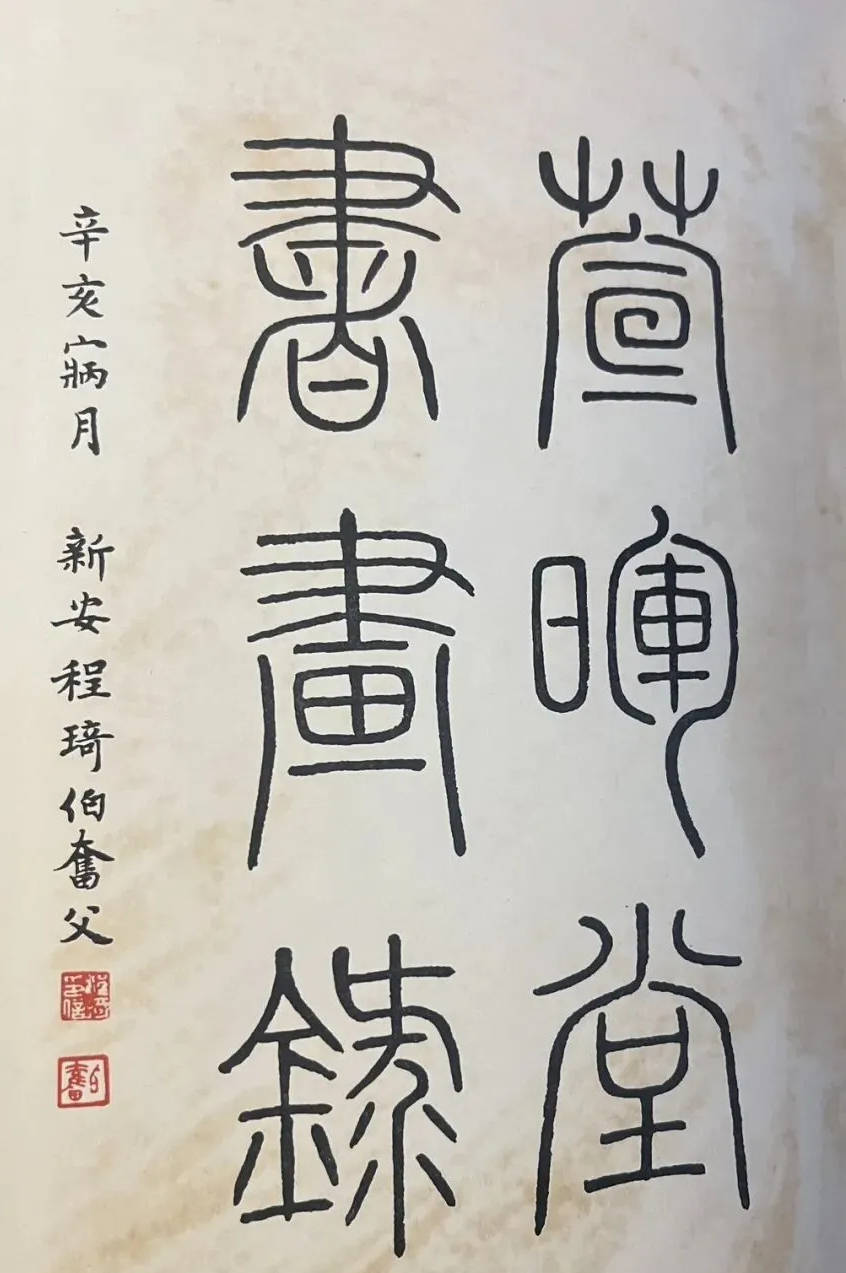 萱暉堂
書畫錄
辛亥寎月 新安程琦伯奮父
伯奮